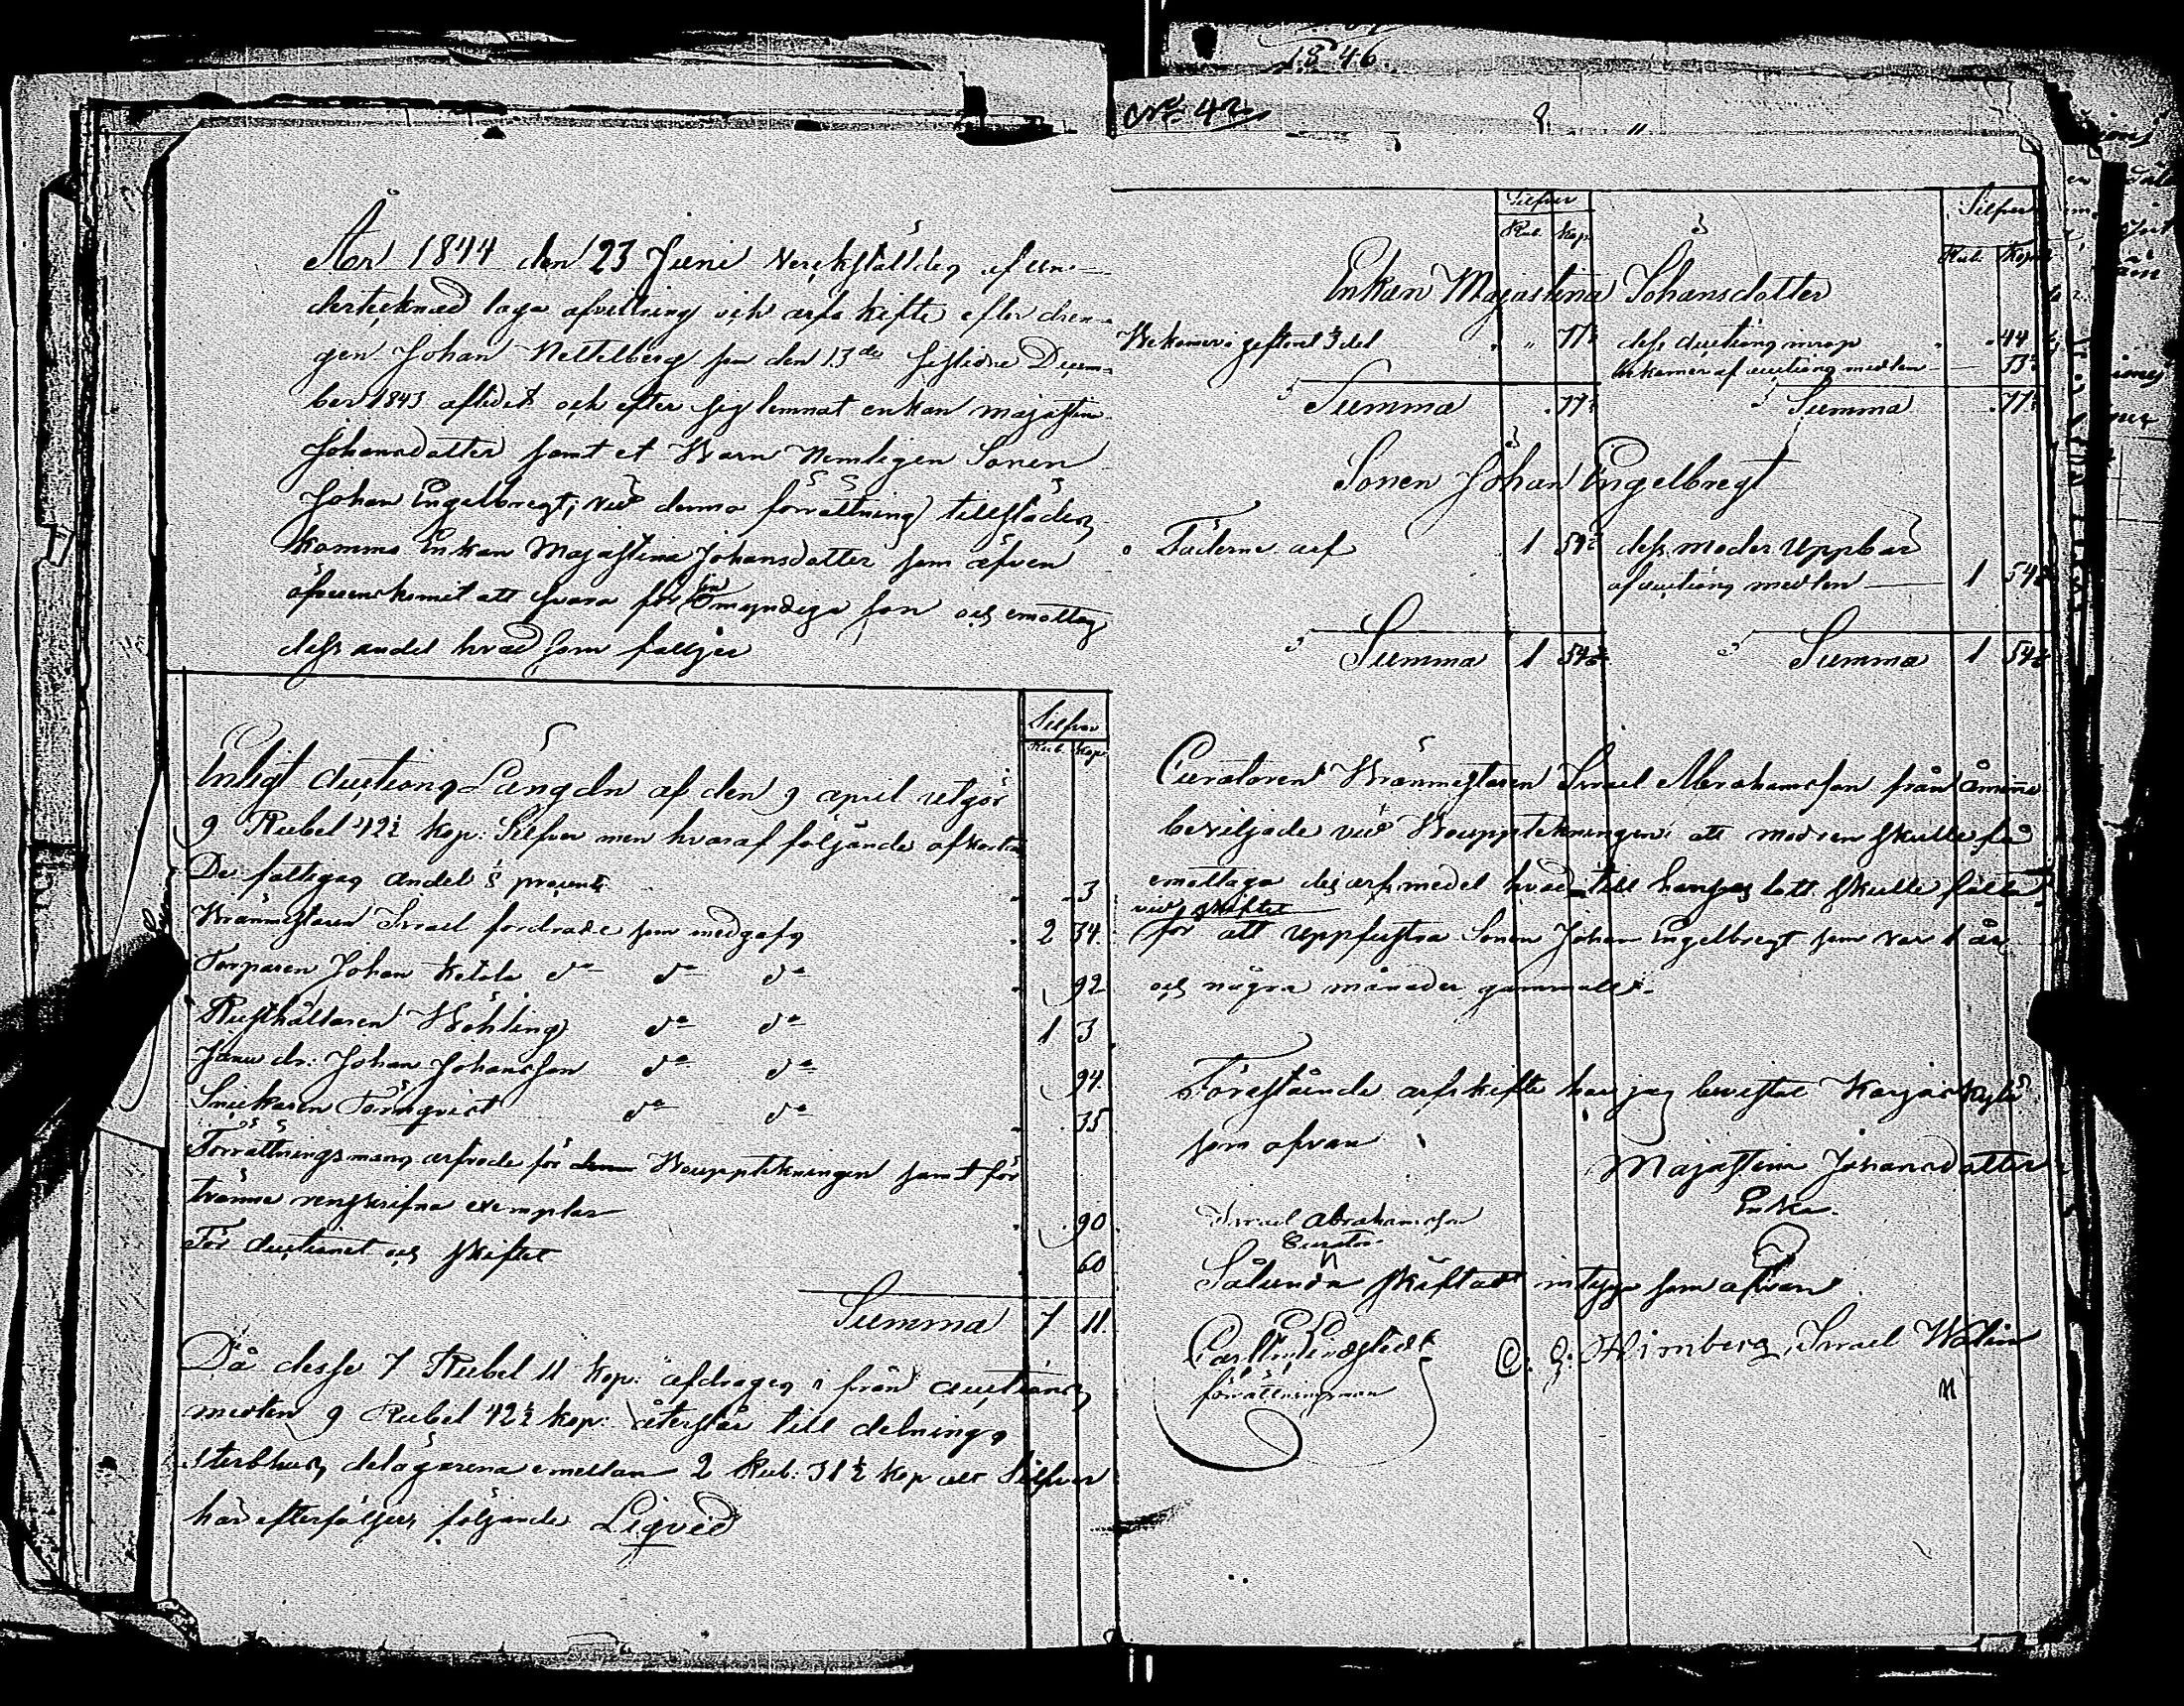 1846.
No 42
År 1844 den 23 Juni Verckstäldes af un-
dertecknad laga afvittring och arfskifte efter dren-
gen Johan Nettelberg som den 13de sistledne Decem-
ber 1843 aflidit och efter sig lemnat enkan Majastina
Johansdotter samt et Barn Nemligen Sonen
Johan Engelbregt; vid denna förrättning tillstädes
komma Enkan Majastina Johansdotter som äfven
öfverenskomit att svara för sin Omyndiga son och emottog
dess andel hvad som följer
Silfver
Rub. Kop.
Enligt Auctions Längdn af den 9 april utgör
9 Rubel 42½ Kop: Silfver men hvaraf följande afkortas
De fattigas andel procent 3
Brännmästaren Israel fordrade som medgafs 2 34.
Torparen Johan Ketola do do do 92
Rusthållaren Böhling do do 1 3
Johan Johansson do do 94.
Snickaren Törnqvist do do 35
Förrättningsmans arfvode för Bouppteckningen samt för
tvänne renskrifna exemplar 90
För Auctionet och skiftet 60
Summa 7 11.
Då desse 7 Rubel 11 Kop: afdrages ifrån auctions
medlen 9 Rubel 42½ Kop: återstår till delning
sterbhus delägarena emellan 2 Rub: 31½ Kop allt Silfver
här efterföljer följande Liqvid
Silfver
Rub. Kop.
Silfver
Rub. Kop.
Enkan Majastina Johansdotter
Bekomer i giftorätt ⅓ del 77 dess auctions inrop 44
Bekomer af auctions medlen 33
Summa 77 Summa 77
Sonen Johan Engelbregt
Fäderne arf 1 54 dess moder Uppbär
af auctions medlen 1 54
Summa 1 54 Summa 1 54
Curatoren Brännmästaren Israel Abrahamsson från Åminne
beviljade vid Bouppteckningen att modren skulle få
emottaga des arfs medel hvad till hanses lott skulle falla
vid skiftet
för att uppfostra Sonen Johan Engelbregt som var 1 år
och några månader gammall.
Förestående arfskifte har jag bevistat Karjaskylä
som ofvan
Majastina Johansdotter
Enka.
Israel Abrahamsson
Curator
Sålunda skiftadt intyga som ofvan
Carl Lindstedt C. G. Wimberg, Israel Walin
förrättningsman
11